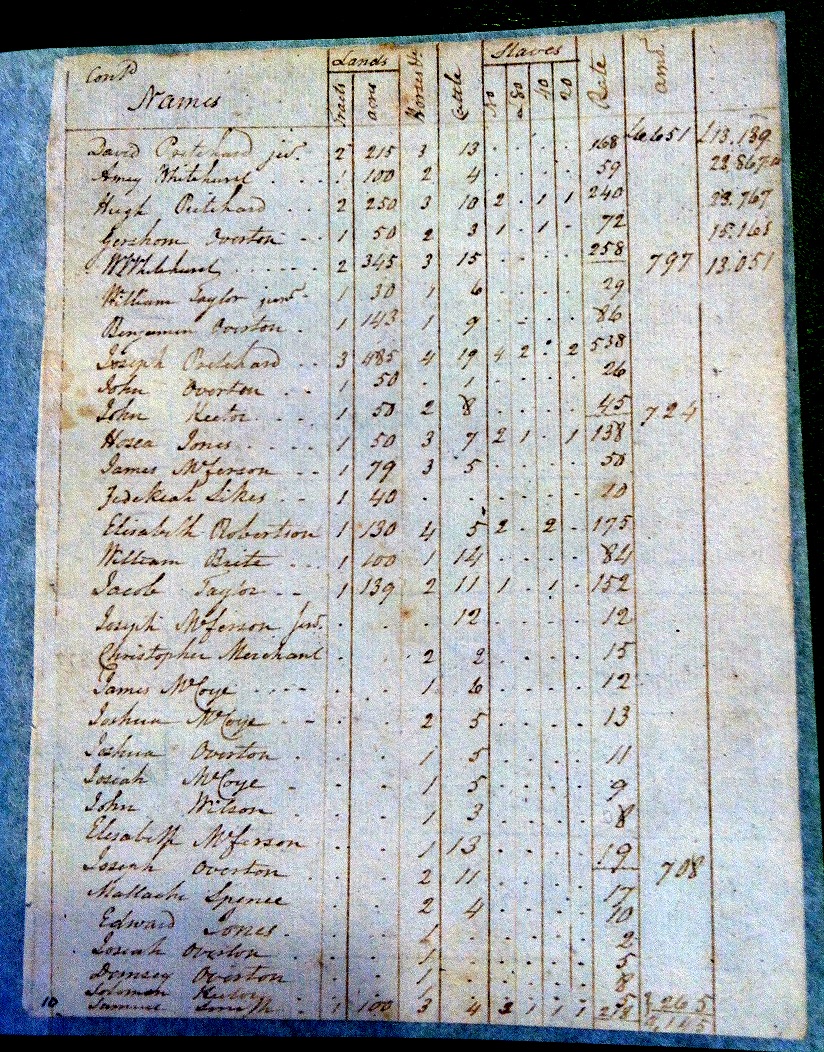 Cont'd Lands Horses &c Cattle Slaves Rate amt.
Names Tracts acrs No £80 40 20
David Pritchard jur. 2 215 3 13 . . . . 168 £6651 £13.139
Amey Whitehurst . . . 1 100 2 4 . . . . 59
Hugh Pritchard . . 2 250 3 10 2 . 1 1 240 23.767
Gershom Overton . . 1 50 2 3 1 . 1 . 72
W Whitehurst . . . . . 2 345 3 15 . . . . 258 797 13.051
William Taylor junr . 1 30 1 6 . . . . 29
Benjamin Overton . 1 143 1 9 . . . . 86
Joseph Pritchard . . 3 485 4 19 4 2 . 2 538
John Overton . . 1 50 . 1 . . . . 26
John Keeton . . . 1 50 2 8 . . . . 45 724
Hosea Jones . . . . 1 50 3 7 2 1 . 1 138
James McFerson . . . 1 79 3 5 . . . . 50
Zedekiah Sikes . . 1 40 . . . . . . 20
Elisabeth Robertson 1 130 4 5 2 . 2 . 175
William Brite . . . 1 100 1 14 . . . . 84
Jacob Taylor . . . 1 139 2 11 1 . 1 . 152
Joseph McFerson junr. . . . 12 . . . . 12
Christopher Merchant . . 2 2 . . . . 15
James McCoye . . . . . . 1 6 . . . . 12
Joshua McCoye . . . . 2 5 . . . . 13
Joshua Overton . . . 1 5 . . . . 11
Josiah McCoye . . . 1 5 . . . . 9
John Wilson . . . 1 3 . . . . 8
Elisabeth McFerson . . 1 13 . . . . 19
Josiah Overton . . . 2 11 . . . . 17 708
Mallachi Spence . . 2 4 . . . . 10
Edward Jones . . . 1 . . . . . 2
Josiah Overton . . . 1 . . . . . 5
Demsey Overton . . . 1 . . . . . 8
Solomon Keeton . . . 1 . . . . . 5
10 Samuel Smith . 1 100 3 4 3 1 1 1 278